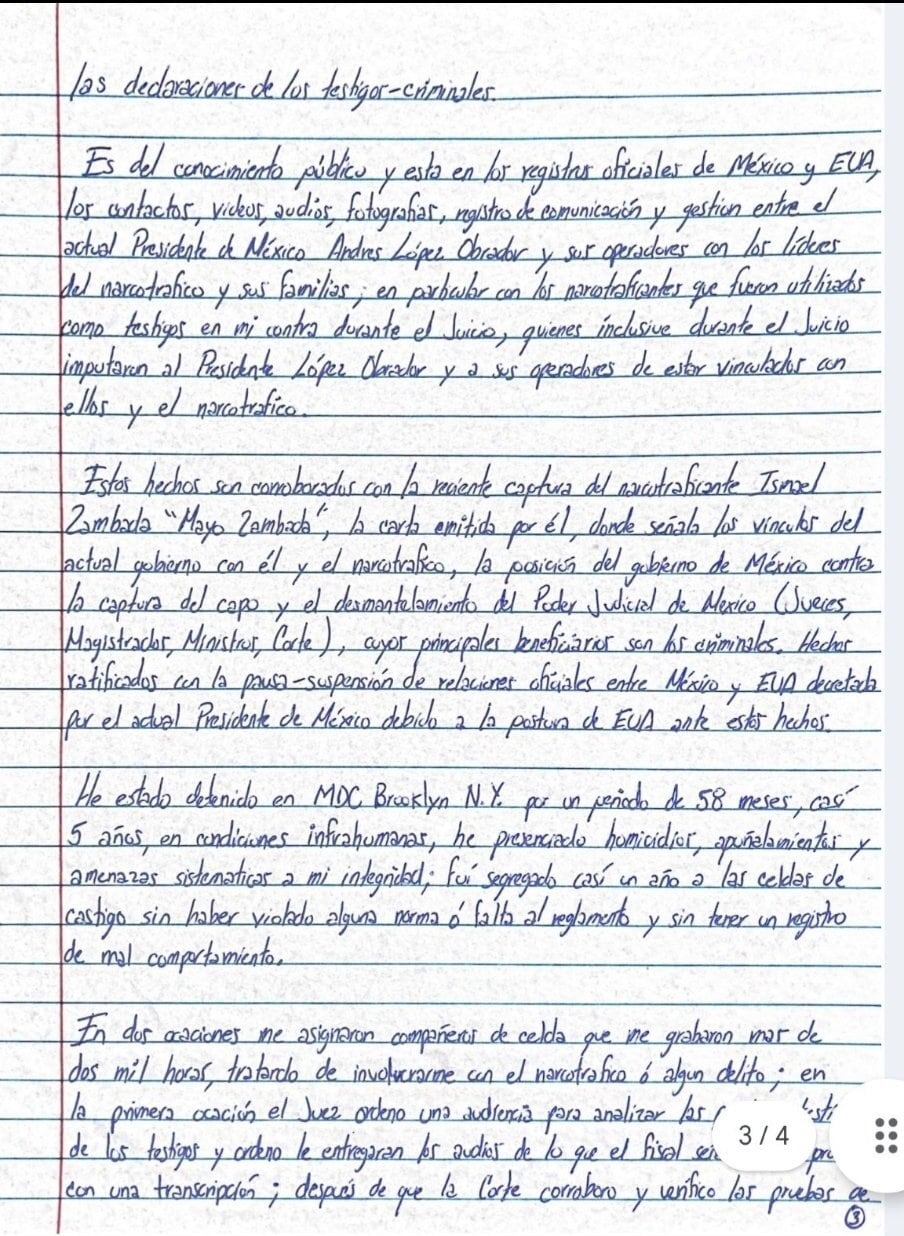 las declaraciones de los testigos-criminales.
Es del conocimiento público y esta en los registros oficiales de México y EUA,
los contactos, videos, audios, fotografías, registro de comunicación y gestion entre el
actual Presidente de México Andres López Obrador y sus operadores con los líderes
del narcotrafico y sus familias; en particular con los narcotraficantes que fueron utilizados
como testigos en mi contra durante el Juicio, quienes inclusive durante el Juicio
imputaron al Presidente López Obrador y a sus operadores de estar vinculados con
ellos y el narcotrafico.
Estos hechos son corroborados con la reciente captura del narcotraficante Ismael
Zambada "Mayo Zambada", la carta emitida por él, donde señala los vinculos del
actual gobierno con él y el narcotrafico, la posición del gobierno de México contra
la captura del capo y el desmantelamiento del Poder Judicial de Mexico (Jueces,
Magistrados, Ministros, Corte), cuyos principales beneficiarios son los criminales. Hechos
ratificados con la pausa-suspensión de relaciones oficiales entre México y EUA decretada
por el actual Presidente de México debido a la postura de EUA ante estos hechos.
He estado detenido en MDC Brooklyn N.Y. por un periodo de 58 meses, casí
5 años, en condiciones infrahumanas, he presenciado homicidios, apuñelamientos y
amenazas sistematicas a mi integridad; fuí segregado casí un año a las celdas de
castigo sin haber violado alguna norma ó falta al reglamento y sin tener un registro
de mal comportamiento.
En dos ocaciones me asignaron compañeros de celda que me grabaron mas de
dos mil horas, tratando de involucrarme con el narcotrafico ó algun delito; en
la primera ocación el Juez ordeno una audiencia para analizar las
de los testigos y ordeno le entregaran los audios de lo que el fiscal
con una transcripción; después de que la Corte corroboro y verifico las pruebas de
3
3 / 4